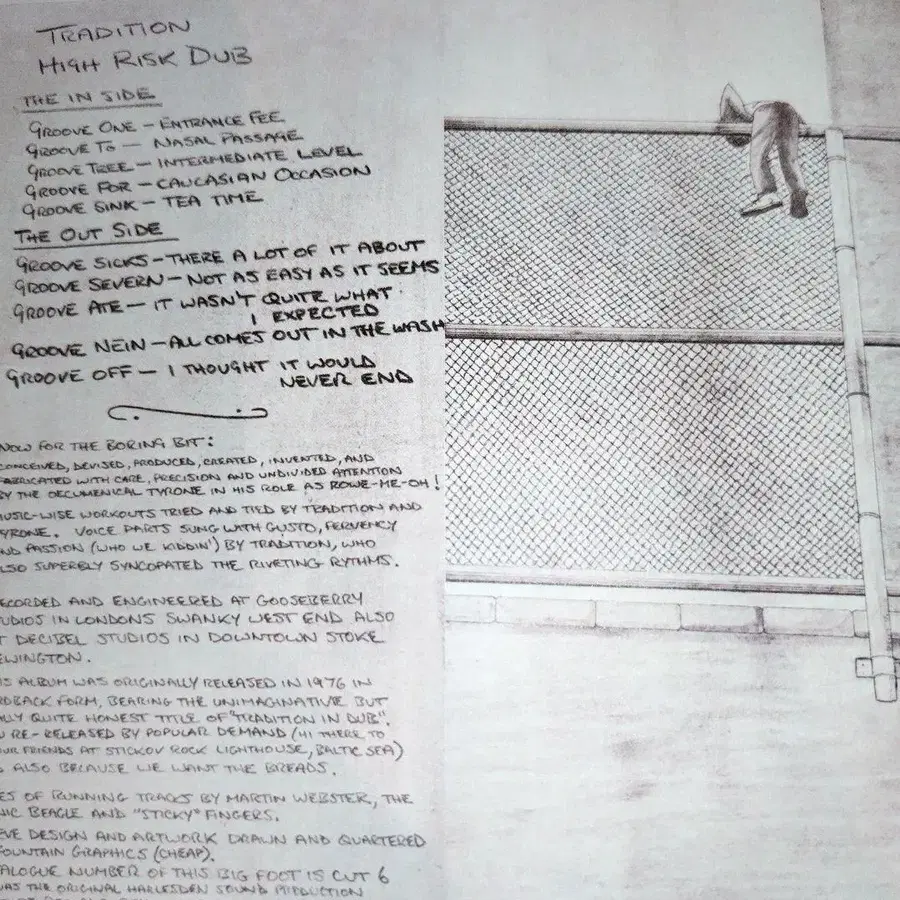 TRADITION
HIGH RISK DUB
THE IN SIDE
GROOVE ONE – ENTRANCE FEE
GROOVE TO – NASAL PASSAGE
GROOVE TREE – INTERMEDIATE LEVEL
GROOVE FOR – CAUCASIAN OCCASION
GROOVE SINK – TEA TIME
THE OUT SIDE
GROOVE SICKS – THERE A LOT OF IT ABOUT
GROOVE SEVERN – NOT AS EASY AS IT SEEMS
GROOVE ATE – IT WASN'T QUITE WHAT
I EXPECTED
GROOVE NEIN – ALL COMES OUT IN THE WASH
GROOVE OFF – I THOUGHT IT WOULD
NEVER END
NOW FOR THE BORING BIT:
CONCEIVED, DEVISED, PRODUCED, CREATED, INVENTED, AND
FABRICATED WITH CARE, PRECISION AND UNDIVIDED ATTENTION
BY THE OECUMENICAL TYRONE IN HIS ROLE AS ROWE-ME-OH!
MUSIC-WISE WORKOUTS TRIED AND TIED BY TRADITION AND
TYRONE. VOICE PARTS SUNG WITH GUSTO, FERVENCY
AND PASSION (WHO WE KIDDIN') BY TRADITION, WHO
ALSO SUPERBLY SYNCOPATED THE RIVETING RYTHMS.
RECORDED AND ENGINEERED AT GOOSEBERRY
UDIOS IN LONDONS SWANKY WEST END ALSO
T DECIBEL STUDIOS IN DOWNTOWN STOKE
EWINGTON.
IS ALBUM WAS ORIGINALLY RELEASED IN 1976 IN
RDBACK FORM, BEARING THE UNIMAGINATIVE BUT
ALLY QUITE HONEST TITLE OF "TRADITION IN DUB".
W RE-RELEASED BY POPULAR DEMAND (HI THERE TO
OUR FRIENDS AT STICKOV ROCK LIGHTHOUSE, BALTIC SEA)
ALSO BECAUSE WE WANT THE BREADS.
ES OF RUNNING TRACKS BY MARTIN WEBSTER, THE
NIC BEAGLE AND "STICKY" FINGERS.
EVE DESIGN AND ARTWORK DRAWN AND QUARTERED
FOUNTAIN GRAPHICS (CHEAP).
ALOGUE NUMBER OF THIS BIG FOOT IS CUT 6
WAS THE ORIGINAL HARLESDEN SOUND PRODUCTION